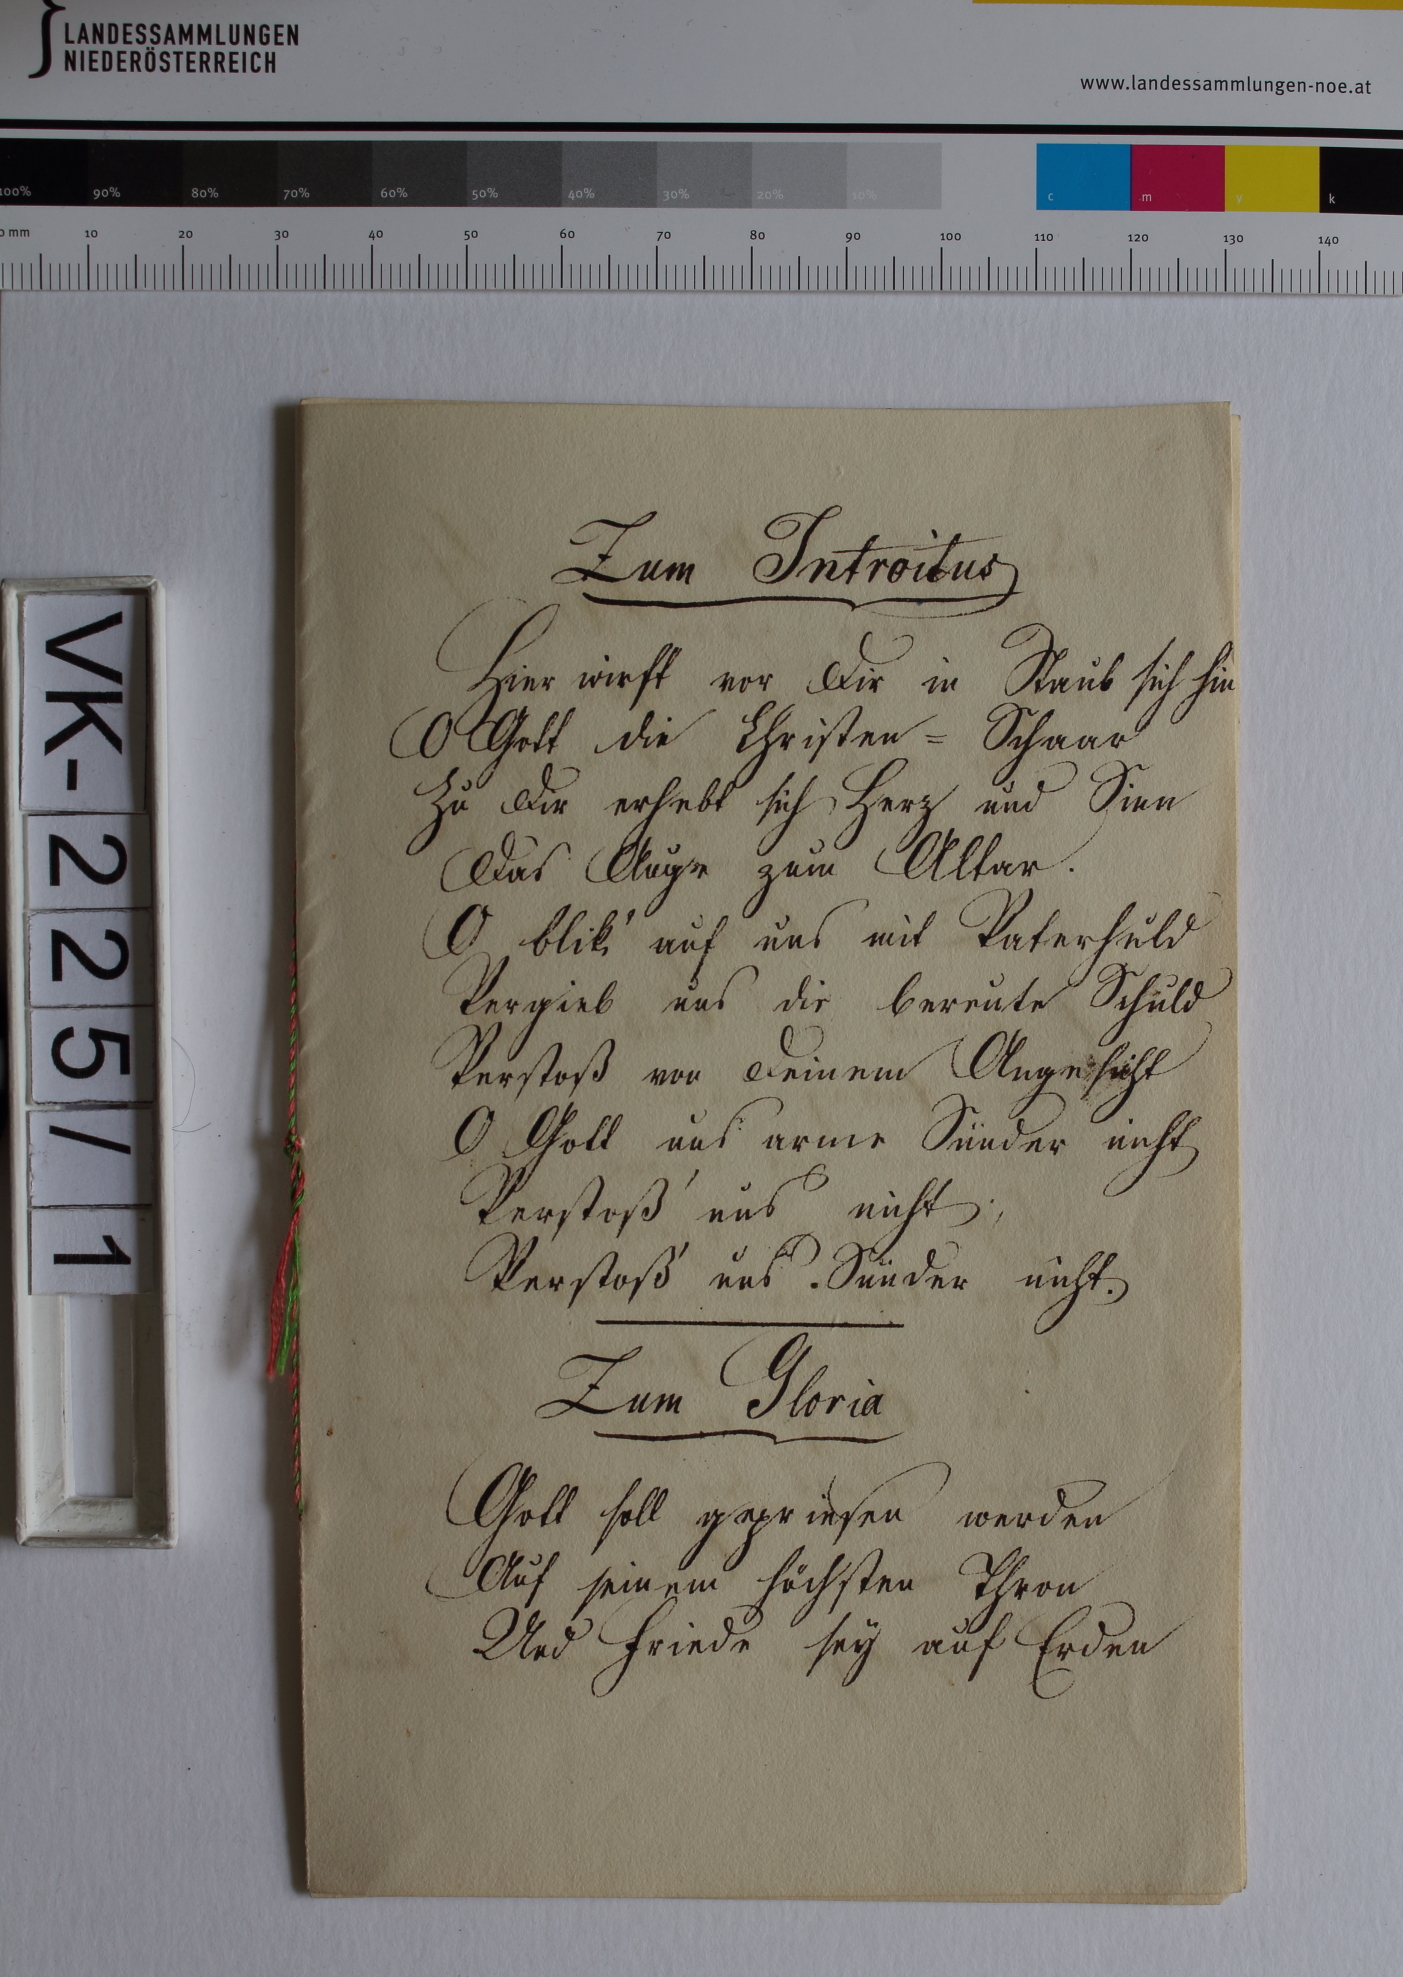 LANDESSAMMLUNGEN
NIEDERÖSTERREICH
www.landessammlungen-noe.at
100% 90% 80% 70% 60% 50% 40% 30% 20% 10% c m y k
0 mm 10 20 30 40 50 60 70 80 90 100 110 120 130 140
VK-225/1
Zum Introitus
Hier wirft vor Dir in Staub sich hin
O Gott die Christen = Schaar
Zu Dir erhebt sich Herz und Sinn
Das Auge zum Altar.
O blik' auf uns mit Vaterhuld
Vergieb uns die bereute Schuld
Verstoß von Deinem Angesicht
O Gott uns arme Sünder nicht
Verstoß' uns nicht,
Verstoß' uns Sünder nicht.
Zum Gloria
Gott soll gepriesen werden
Auf seinem höchsten Thron
Und Friede sey auf Erden